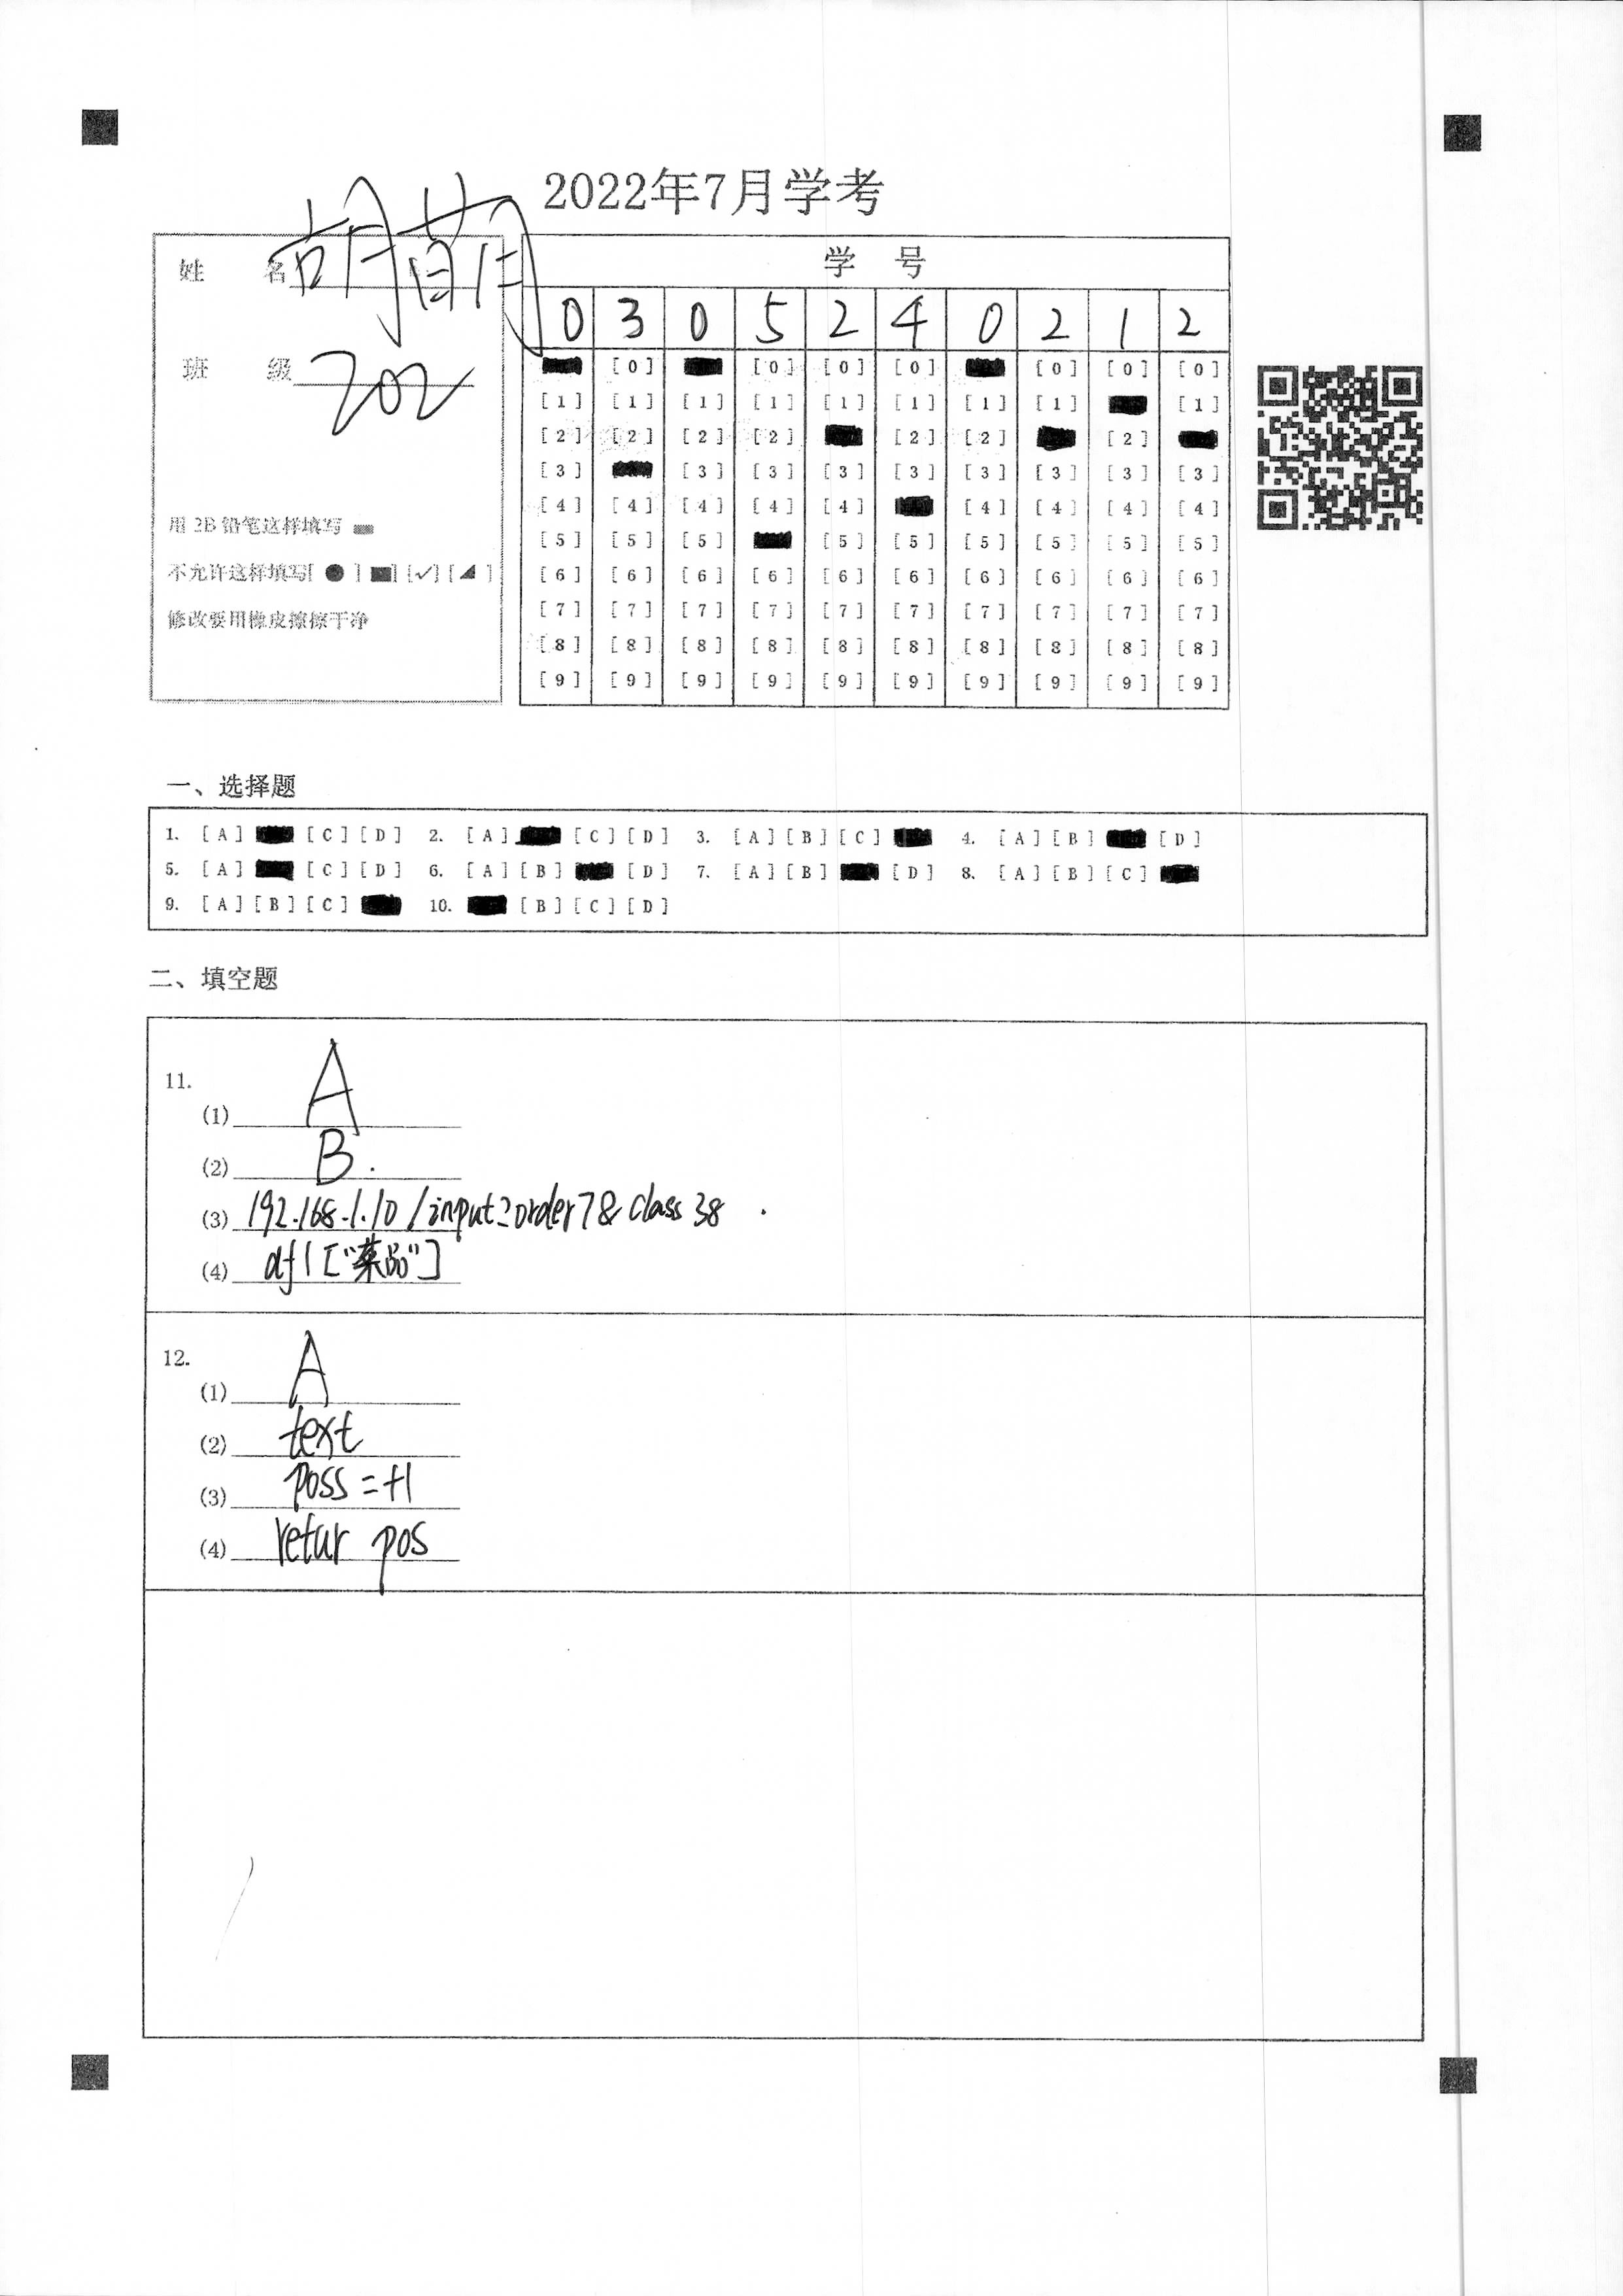 2022年7月学考
姓 名 胡萌
班 级 202
用 2B 铅笔这样填写
不允许这样填写[ ● ] [■] [✓] [◢ ]
修改要用橡皮擦擦干净
学 号
0 3 0 5 2 4 0 2 1 2
[0] [0] [0] [0] [0] [0] [0]
[1] [1] [1] [1] [1] [1] [1] [1] [1]
[2] [2] [2] [2] [2] [2] [2]
[3] [3] [3] [3] [3] [3] [3] [3] [3]
[4] [4] [4] [4] [4] [4] [4] [4] [4]
[5] [5] [5] [5] [5] [5] [5] [5] [5]
[6] [6] [6] [6] [6] [6] [6] [6] [6] [6]
[7] [7] [7] [7] [7] [7] [7] [7] [7] [7]
[8] [8] [8] [8] [8] [8] [8] [8] [8] [8]
[9] [9] [9] [9] [9] [9] [9] [9] [9] [9]
一、选择题
1. [A] [C] [D] 2. [A] [C] [D] 3. [A] [B] [C] 4. [A] [B] [D]
5. [A] [C] [D] 6. [A] [B] [D] 7. [A] [B] [D] 8. [A] [B] [C]
9. [A] [B] [C] 10. [B] [C] [D]
二、填空题
11.
(1) A
(2) B.
(3) 192.168.1.10/input?order7&class38.
(4) df1["菜品"]
12.
(1) A
(2) text
(3) poss=+1
(4) retur pos